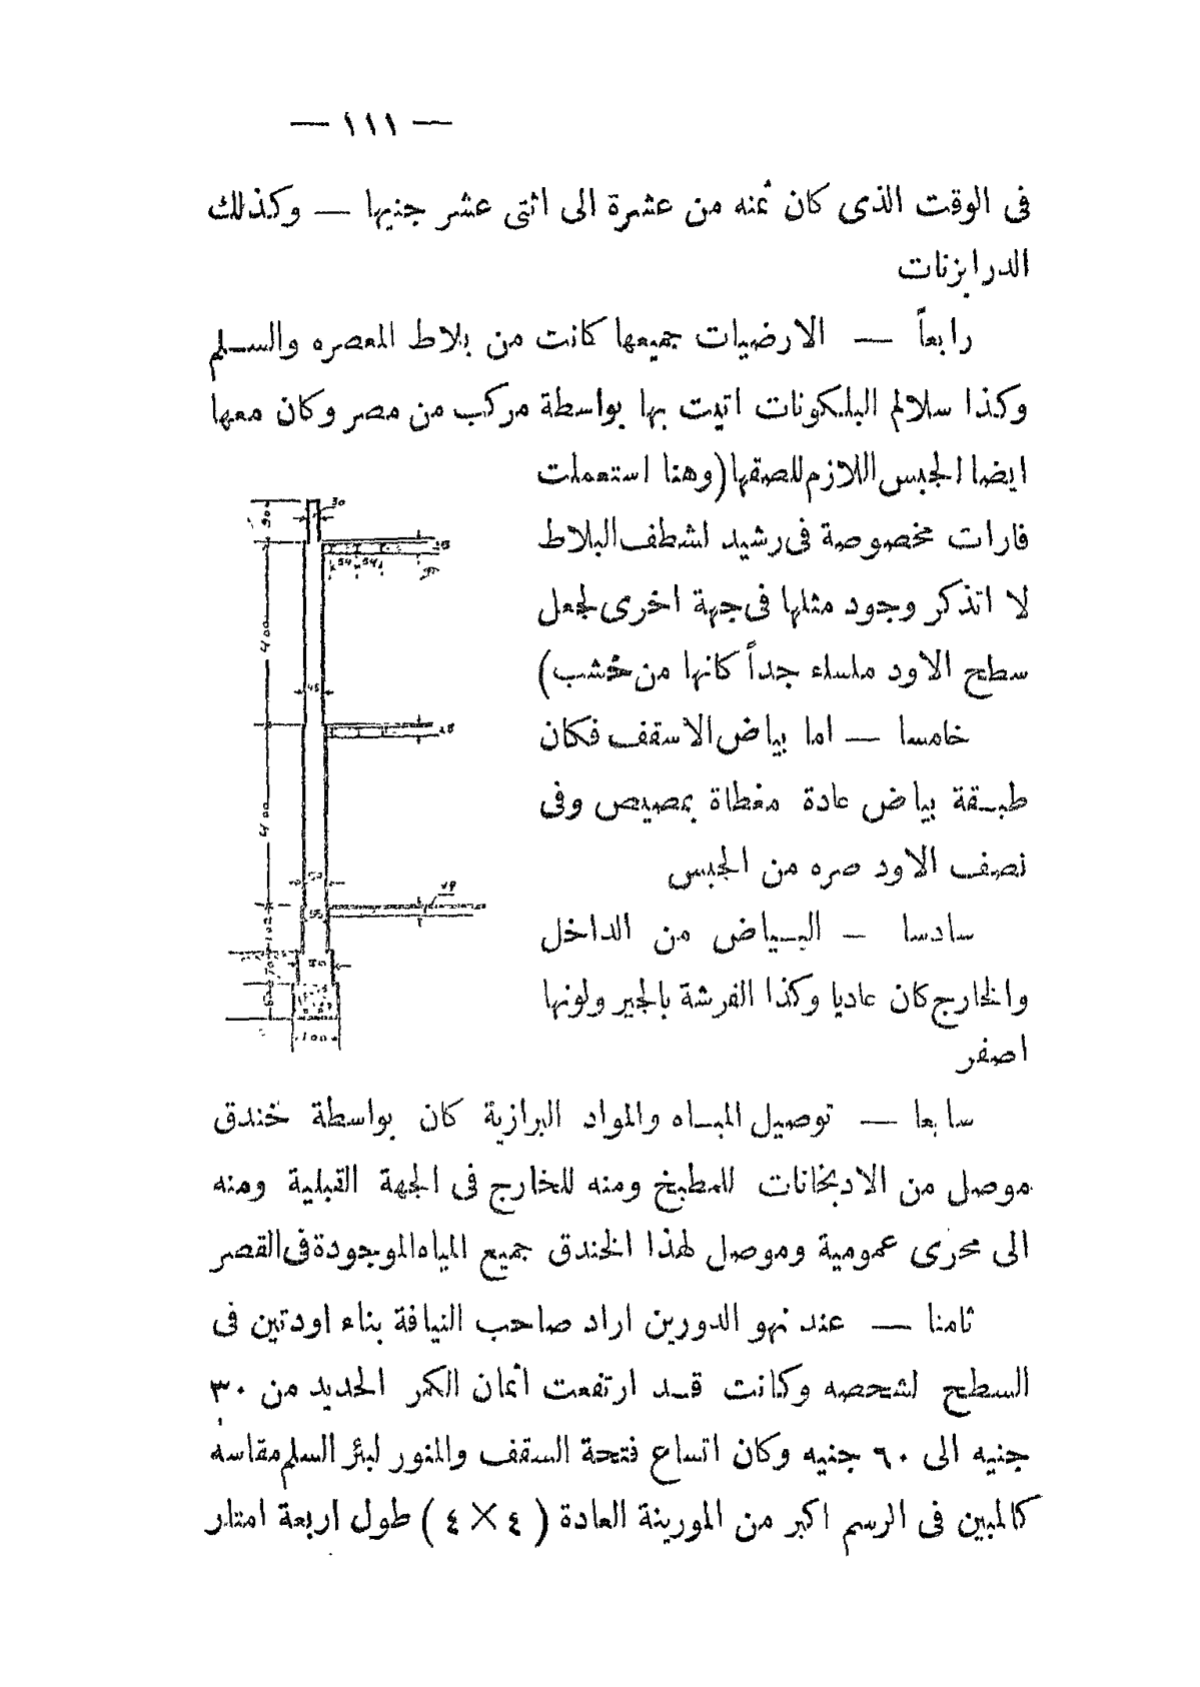 — ١١١ —
فى الوقت الذى كان ثمنه من عشرة الى اثنى عشر جنيها — وكذلك
الدرابزنات
رابعاً — الارضيات جميعها كانت من بلاط المعصره والسلم
وكذا سلالم البلكونات اتيت بها بواسطة مركب من مصر وكان معها
ايضا الجبس اللازم للصقها (وهنا استعملت
فارات مخصوصة فى رشيد لشطف البلاط
لا اتذكر وجود مثلها فى جهة اخرى لجعل
سطح الاود ملساء جداً كانها من خشب)
خامسا — اما بياض الاسقف فكان
طبقة بياض عادة مغطاة بمصيص وفى
نصف الاود صره من الجبس
سادسا — البياض من الداخل
والخارج كان عاديا وكذا الفرشة بالجير ولونها
اصفر
سابعا — توصيل المياه والمواد البرازية كان بواسطة خندق
موصل من الادبخانات للمطبخ ومنه للخارج فى الجهة القبلية ومنه
الى مجرى عمومية وموصل لهذا الخندق جميع المياه الموجودة فى القصر
ثامنا — عند نهو الدورين اراد صاحب النيافة بناء اودتين فى
السطح لشخصه وكانت قد ارتفعت أثمان الكمر الحديد من ٣٠
جنيه الى ٦٠ جنيه وكان اتساع فتحة السقف والمنور لبئر السلم مقاسه
كالمبين فى الرسم اكبر من المورينة العادة ( ٤ × ٤ ) طول اربعة امتار
30
90
25
54 54
400
45
25
400
50
19
55
102
80
70
60
100